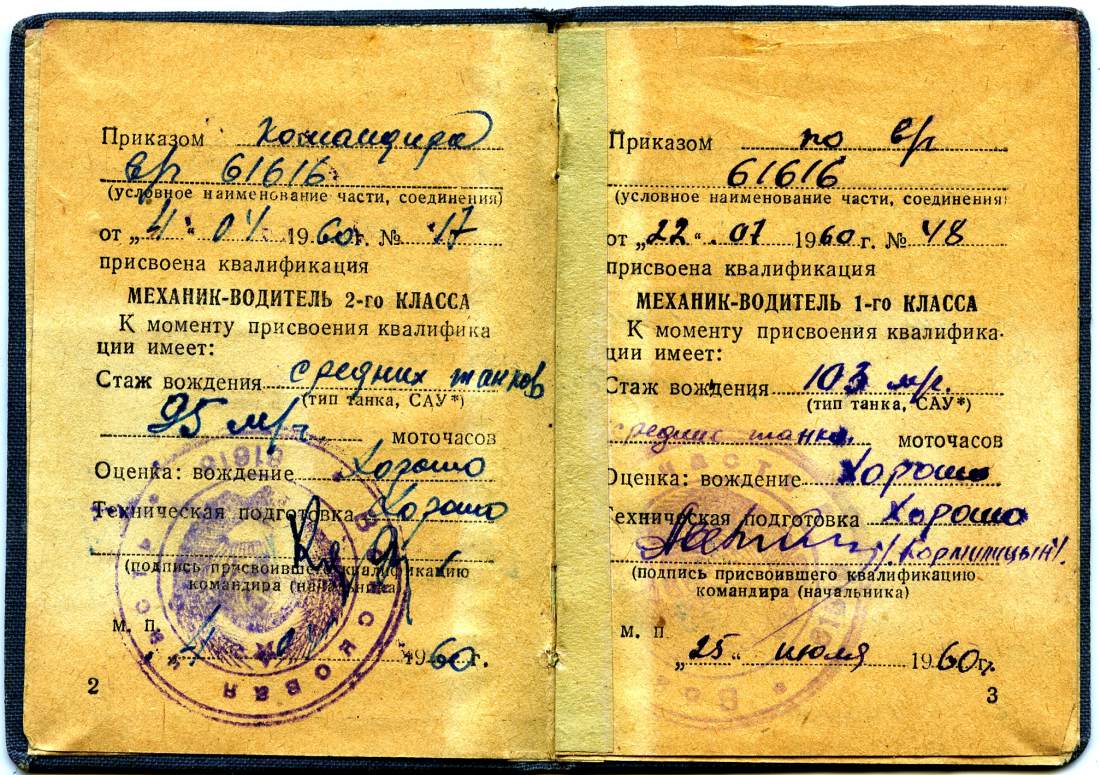 Приказом командира
в/ч 61616
(условное наименование части, соединения)
от „4“ 04 1960 г. № 17
присвоена квалификация
МЕХАНИК-ВОДИТЕЛЬ 2-го КЛАССА
К моменту присвоения квалифика
ции имеет:
Стаж вождения средних танков
(тип танка, САУ*)
95 м/ч моточасов
Оценка: вождение Хорошо
Техническая подготовка Хорошо
(подпись присвоившего квалификацию
командира (начальника)
м. п.
„4 1960 г.
2
Приказом по в/ч
61616
(условное наименование части, соединения)
от „22“ 07 1960 г. № 48
присвоена квалификация
МЕХАНИК-ВОДИТЕЛЬ 1-го КЛАССА
К моменту присвоения квалифика-
ции имеет:
Стаж вождения 103 м/ч.
(тип танка, САУ*)
средние танки моточасов
Оценка: вождение Хорошо
Техническая подготовка Хорошо
/Кормилицын/
(подпись присвоившего квалификацию
командира (начальника)
м. п
„25“ июля 1960 г.
3